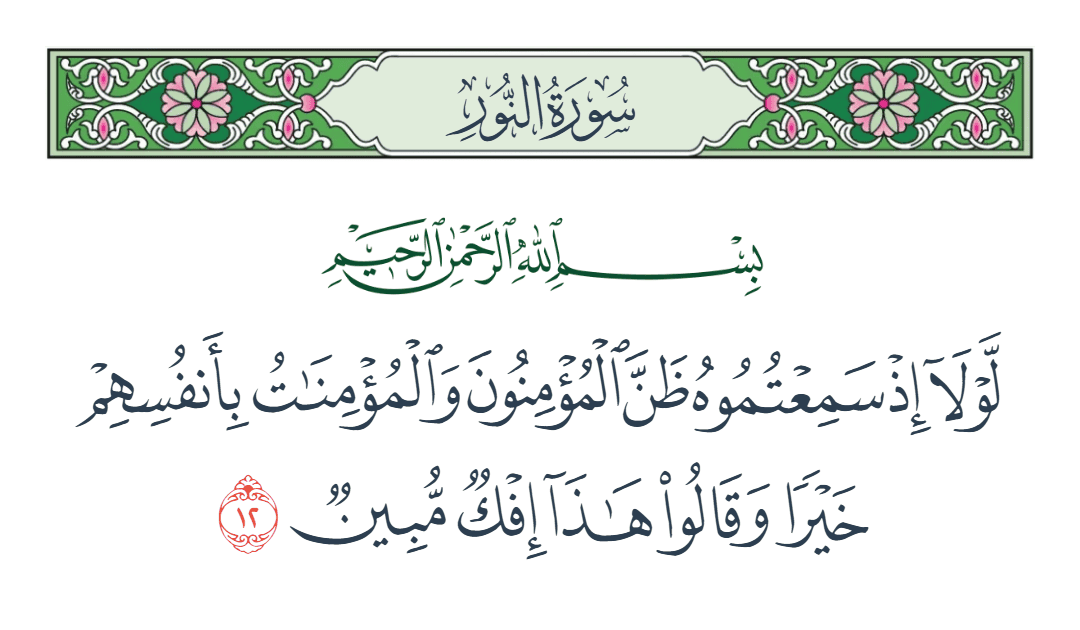 سُورَةُ النُّورِ
بِسْمِ ٱللَّهِ ٱلرَّحْمَٰنِ ٱلرَّحِيمِ
لَّوْلَآ إِذْ سَمِعْتُمُوهُ ظَنَّ ٱلْمُؤْمِنُونَ وَٱلْمُؤْمِنَٰتُ بِأَنفُسِهِمْ
خَيْرًا وَقَالُوا۟ هَٰذَآ إِفْكٌ مُّبِينٌ ١٢